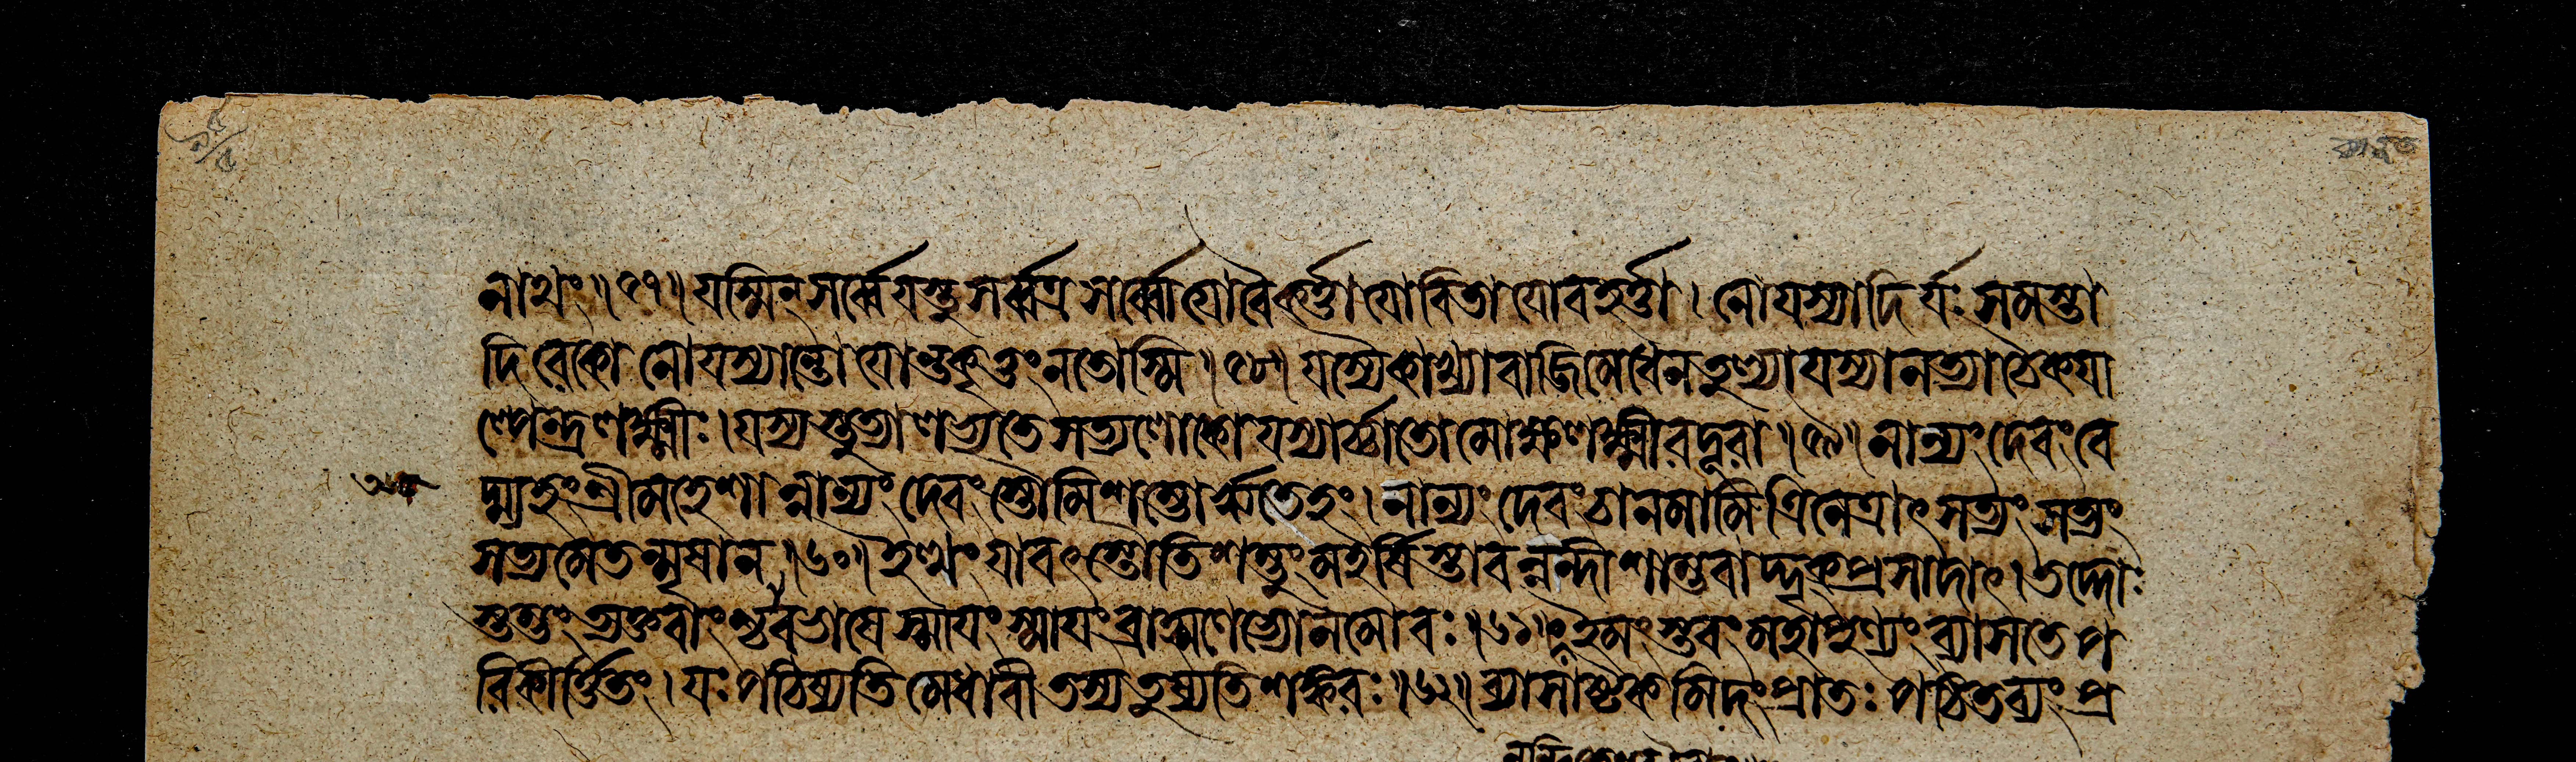 নাথং ॥ ৫৭ ॥ যস্মিন্ সর্ব্বে যস্তু সর্ব্বত্র সর্ব্বো যো বৈ কর্ত্তা যো বিতা যো বহর্ত্তা । নো যস্যাদির্যঃ সমস্তা
দিরেকো নো যস্যান্তো যোন্তকৃত্তং নতোস্মি ॥ ৫৮ ॥ যস্যৈকাখ্যা বাজিমেধেন তুল্যা যস্যানত্যা চৈকয়া
ল্পেন্দ্রলক্ষ্মীঃ । যস্য স্তুত্যা লভ্যতে সত্যলোকো যস্যার্চ্চাতো মোক্ষলক্ষ্মীরদূরা ॥ ৫৯ ॥ নান্যং দেবং বে
দ্ম্যহং শ্রীমহেশান্নান্যং দেবং স্তৌমি শম্ভোর্ঋতেহং । নান্যং দেবং বা নমামি ত্রিনেত্রাৎ সত্যং সত্যং
সত্যমেতন্মৃষা ন ॥ ৬০ ॥ ইত্থং যাবৎ স্তৌতি শম্ভুং মহর্ষিস্তাবন্নন্দী শাম্ভবাদ্দৃক্প্রসাদাৎ । তদ্দোঃ
স্তম্ভং ত্যক্তবাংশ্চাবভাষে স্মায়ং স্মায়ং ব্রাহ্মণেভ্যো নমো বঃ ॥ ৬১ ॥ ইমং স্তবং মহাপুণ্যং ব্যাস তে প
রিকীর্ত্তিতং । যঃ পঠিষ্যতি মেধাবী তস্য তুষ্যতি শঙ্করঃ ॥ ৬২ ॥ ব্যাসাষ্টকমিদং প্রাতঃ পঠিতব্যং প্র